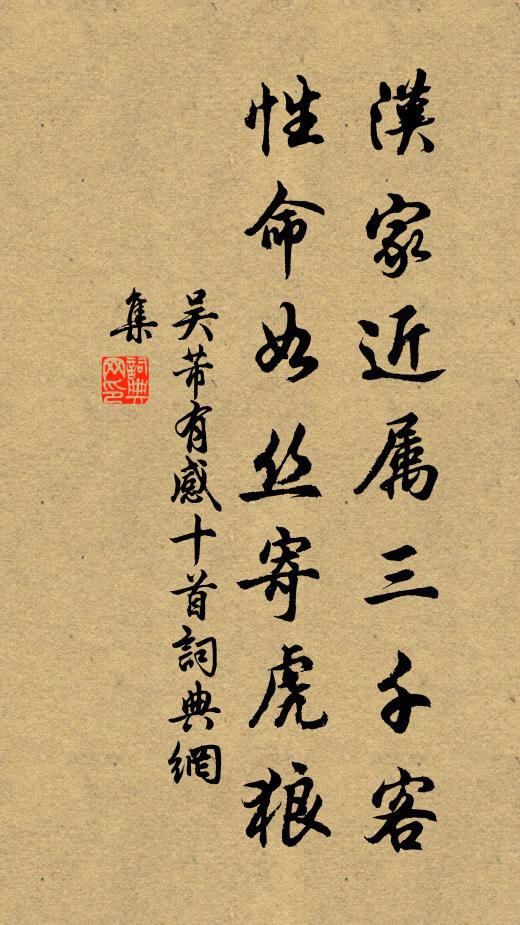 漢家近属三千客
性命如丝寄虎狼
吴芾有感十首詞典網
集
詞典网印